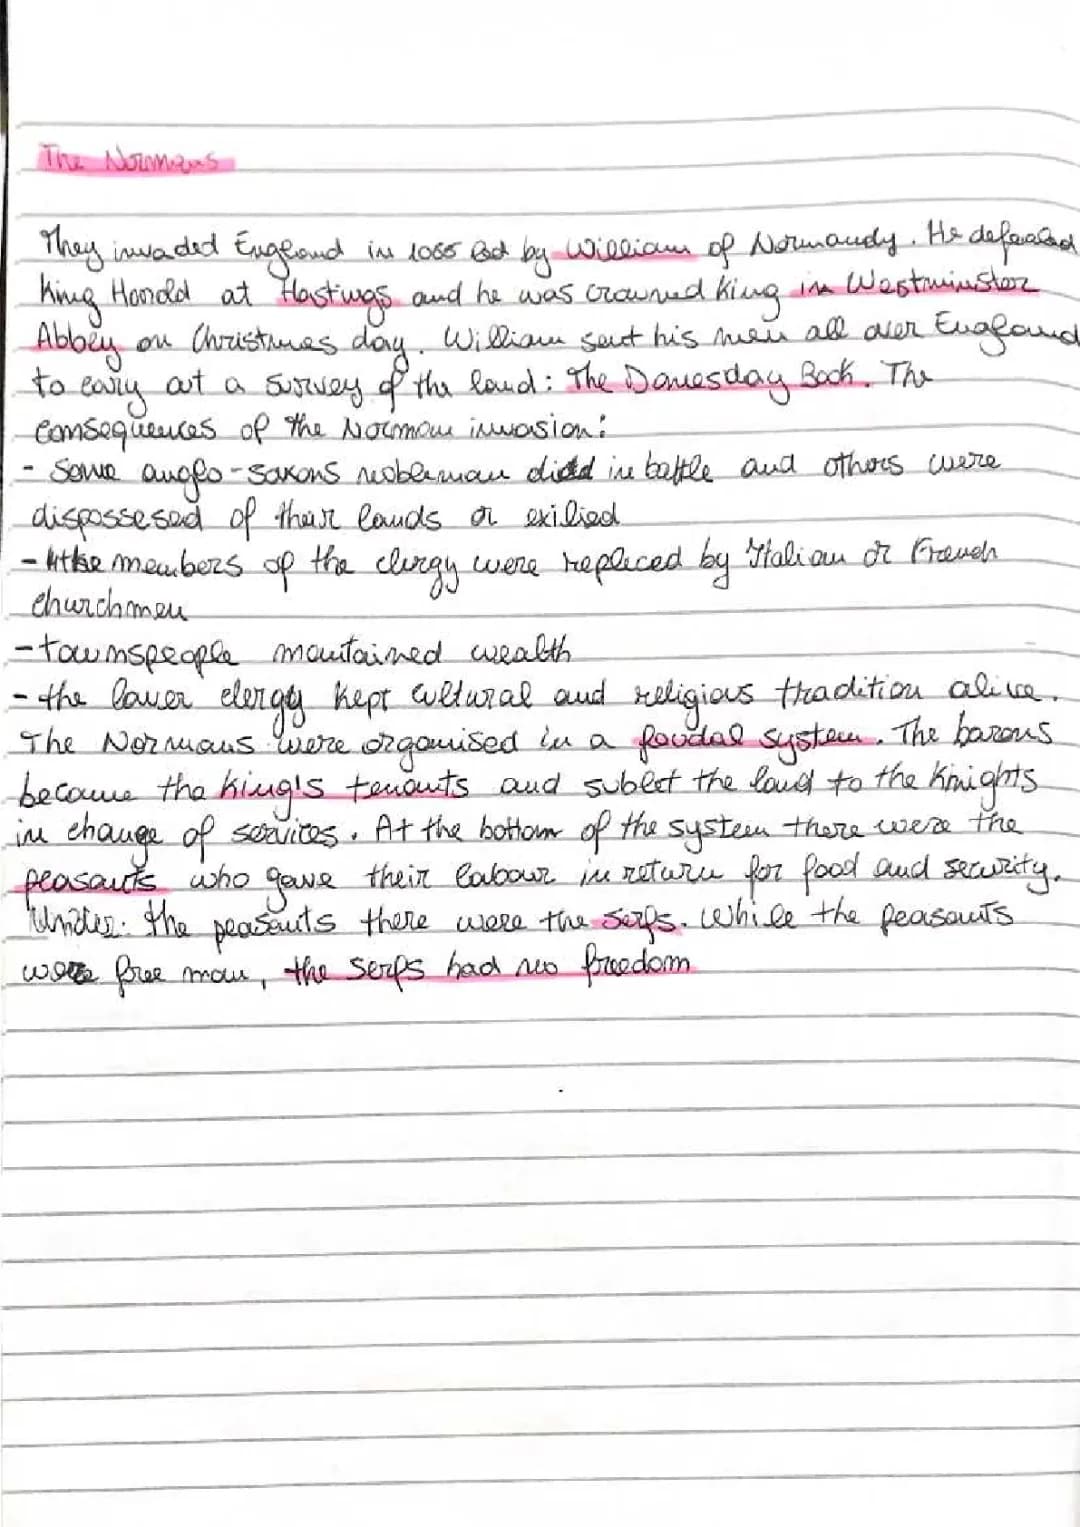 The Normans
They invaded England in 1066 led by William of Normandy. He defeated
King Harold at Hastings and he was crowned King in Westminster
Abbey on Christmas day. William sent his men all over England
to cary out a survey of the land: The Domesday Book. The
consequences of the Norman invasion:
- Some anglo-saxons nobleman died in battle and others were
dispossesed of their lands or exilied
- members of the clergy were replaced by Italian or French
churchmen
- townspeople mantained wealth
- the lower clergy kept cultural and religious tradition alive.
The Normans were organised in a feudal system. The barons
became the king's tenants and sublet the land to the Knights
in change of services. At the bottom of the system there were the
peasants who gave their labour in return for food and security.
Under the peasants there were the serfs. While the peasants
were free man, the serfs had no freedom